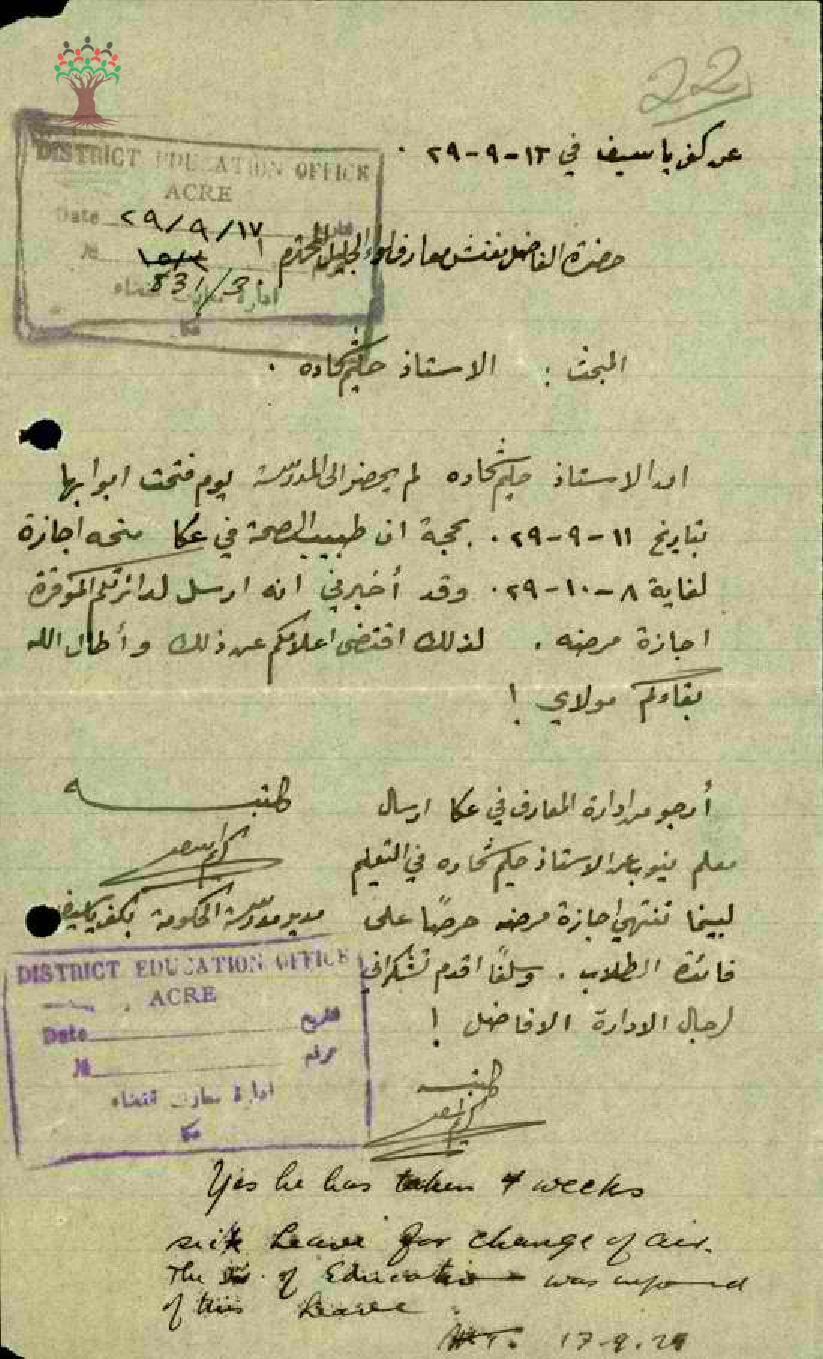 22
عن كفر ياسيف في ١٢-٩-٢٩ .
DISTRICT EDUCATION OFFICE
ACRE
Date ٢٩/٩/١٧ تاريخ
№
531/30
ادارة معارف قضاء
عكا
حضرة الفاضل مفتش معارف لواء الجليل المحترم
المبحث : الاستاذ حكيم شحاده .
ان الاستاذ حكيم شحاده لم يحضر الى المدرسة يوم فتحت ابوابها
بتاريخ ١١-٩-٢٩ . بحجة ان طبيب الصحة في عكا منحه اجازة
لغاية ٨-١٠-٢٩ . وقد أخبرني انه ارسل لدائرتكم الموقرة
اجازة مرضه . لذلك اقتضى اعلامكم عن ذلك وأطال الله
بقاءكم مولاي !
كتبه
مدير مدرسة الحكومة بكفر ياسيف
أرجو من ادارة المعارف في عكا ارسال
معلم ينوب عن الاستاذ حكيم شحاده في التعليم
لبينما تنتهي اجازة مرضه حرصًا على
فائدة الطلاب . وسلفًا اقدم تشكراتي
لرجال الادارة الافاضل !
كتبه
DISTRICT EDUCATION OFFICE
ACRE
Date تاريخ
№ نمرة
ادارة معارف قضاء
عكا
Yes he has taken 4 weeks
sick leave for change of air.
The of Education was informed
of this leave.
17-9-29